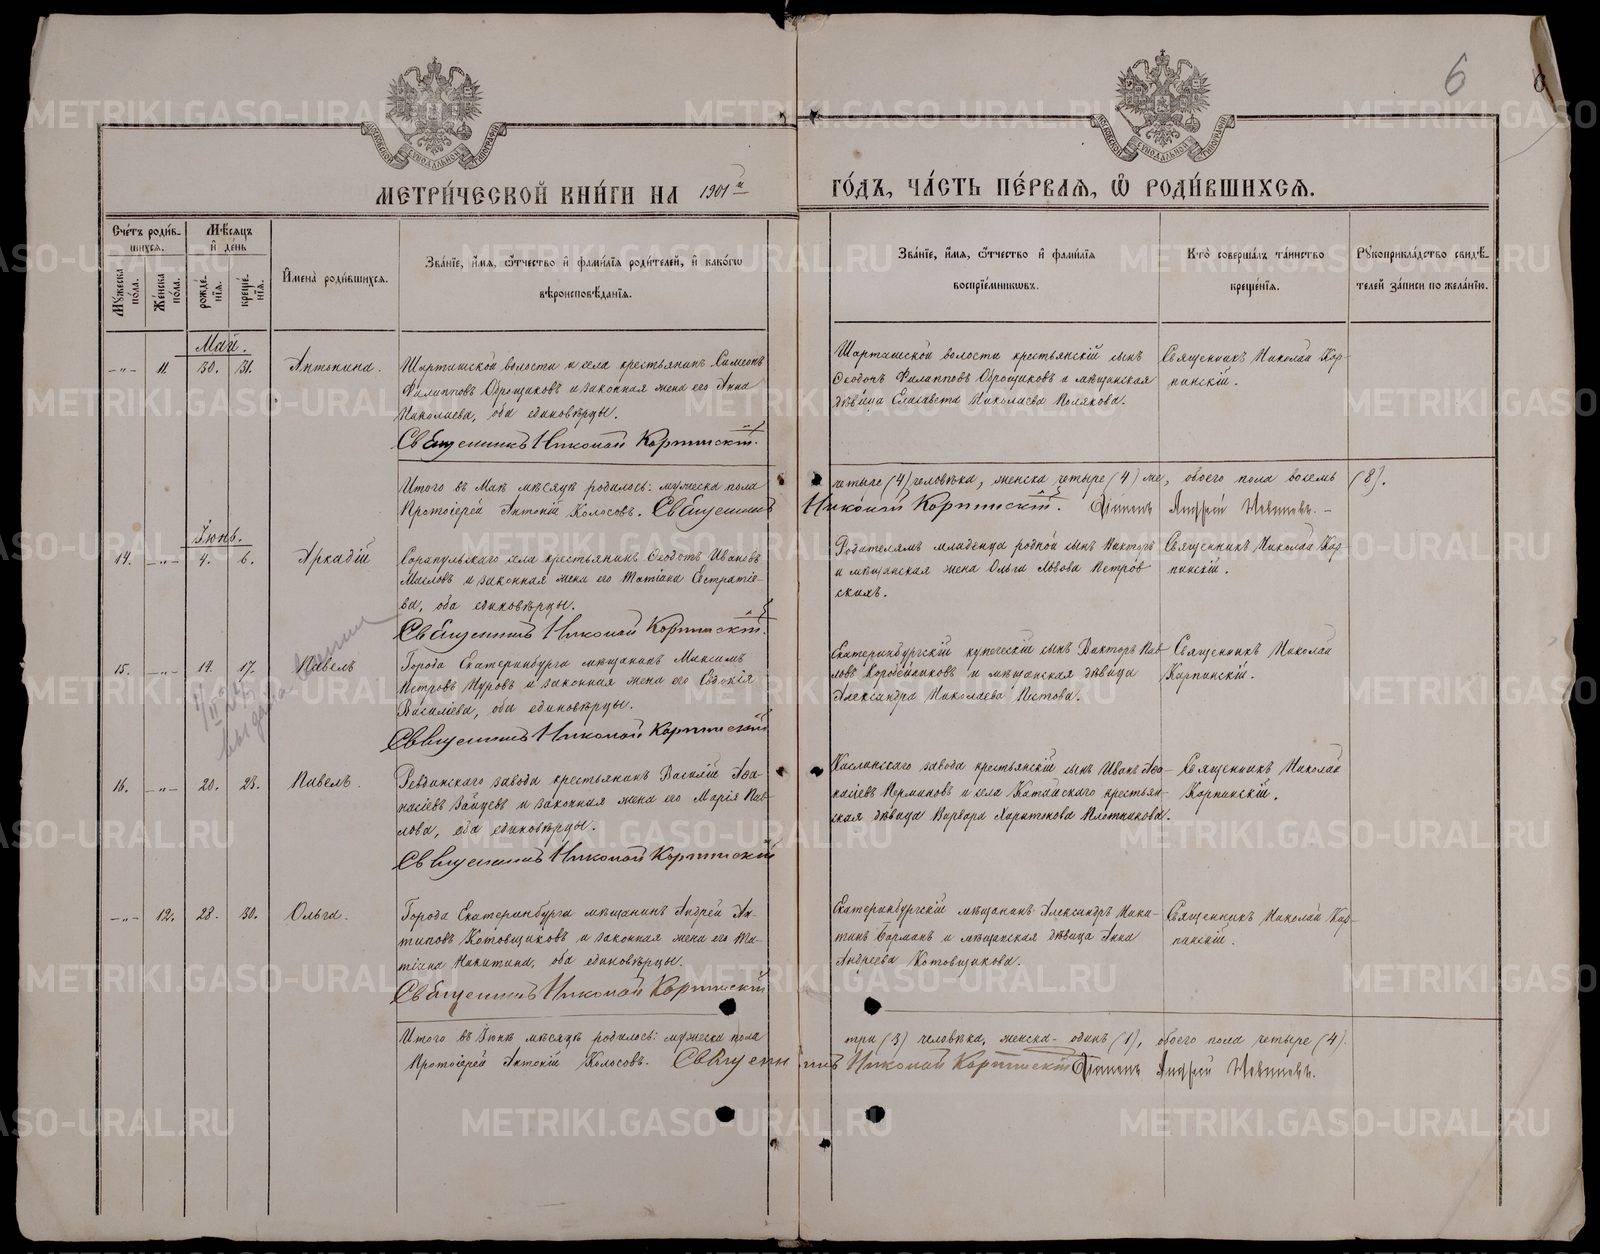 6
МЕТРИ́ЧЕСКОЙ КНИ́ГИ НА 1901й
ГО́ДЪ, ЧА́СТЬ ПЕ́РВАЯ, Ѡ РОДИ́ВШИХСЯ.
Сче́тъ роди́в-
шихся.
Му́жеска по́ла.
Же́нска по́ла.
Мѣ́сяцъ
и҆ де́нь
рожде́-
нїя.
креще́-
нїя.
И҆мена̀ роди́вшихся.
Зва́нїе, и҆́мя, ѻ҆́тчество и҆ фами́лїя роди́телей, и҆ како́гѡ
вѣроисповѣ́данїя.
Зва́нїе, и҆́мя, ѻ҆́тчество и҆ фами́лїя
воспрїе́мникѡвъ.
Кто̀ соверша́лъ та́инство
креще́нїя.
Рꙋкоприкла́дство свидѣ́-
телей за́писи по жела́нїю.
Май.
-"- 11 30. 31. Антонина.
Шарташской волости и села крестьянинъ Симеонъ
Филипповъ Оброщиковъ и законная жена его Анна
Николаева, оба единовѣрцы.
Священникъ Николай Карпинскій.
Шарташской волости крестьянскій сынъ
Ѳеодотъ Филипповъ Оброщиковъ и мѣщанская
дѣвица Елисавета Николаева Полякова.
Священникъ Николай Кар-
пинскій.
Итого въ Маѣ мѣсяцѣ родилось: мужеска пола
четыре (4) человѣка, женска четыре (4) же, обоего пола восемь (8).
Протоіерей Антоній Колосовъ. Священникъ
Николай Карпинскій. Діаконъ Андрей
Іюнь.
14. -"- 4. 6. Аркадій
Сарапульскаго села крестьянинъ Ѳеодотъ Ивановъ
Масловъ и законная жена его Татіана Евстратіе-
ва, оба единовѣрцы.
Священникъ Николай Карпинскій.
Родителямъ младенца родной сынъ Викторъ
и мѣщанская жена Ольга Львова Петров-
скихъ.
Священникъ Николай Кар-
пинскій.
15. -"- 14. 17. Павелъ
выдана
Города Екатеринбурга мѣщанинъ Максимъ
Петровъ Нуровъ и законная жена его Евдокія
Василіева, оба единовѣрцы.
Священникъ Николай Карпинскій
Екатеринбургскій купеческій сынъ Викторъ Пав-
ловъ Коробейниковъ и мѣщанская дѣвица
Александра Николаева Пестова.
Священникъ Николай
Карпинскій.
16. -"- 20. 23. Павелъ.
Ревдинскаго завода крестьянинъ Василій Аѳа-
насіевъ Зайцевъ и законная жена его Марія Пав-
лова, оба единовѣрцы.
Священникъ Николай Карпинскій
Каслинскаго завода крестьянскій сынъ Иванъ Аѳа-
насіевъ Перминовъ и села Катайскаго крестьян-
ская дѣвица Варвара Харитонова Плотникова.
Священникъ Николай
Карпинскій.
-"- 12. 28. 30. Ольга.
Города Екатеринбурга мѣщанинъ Андрей Ан-
типовъ Котовщиковъ и законная жена его Та-
тіана Никитина, оба единовѣрцы.
Священникъ Николай Карпинскій
Екатеринбургскій мѣщанинъ Александръ Ники-
тинъ Барминъ и мѣщанская дѣвица Анна
Андреева Котовщикова.
Священникъ Николай Кар-
пинскій.
Итого въ Іюнѣ мѣсяцѣ родилось: мужеска пола
три (3) человѣка, женска- одинъ (1), обоего пола четыре (4).
Протоіерей Антоній Колосовъ. Священникъ Николай Карпинскій Діаконъ Андрей
METRIKI.GASO-URAL.RU